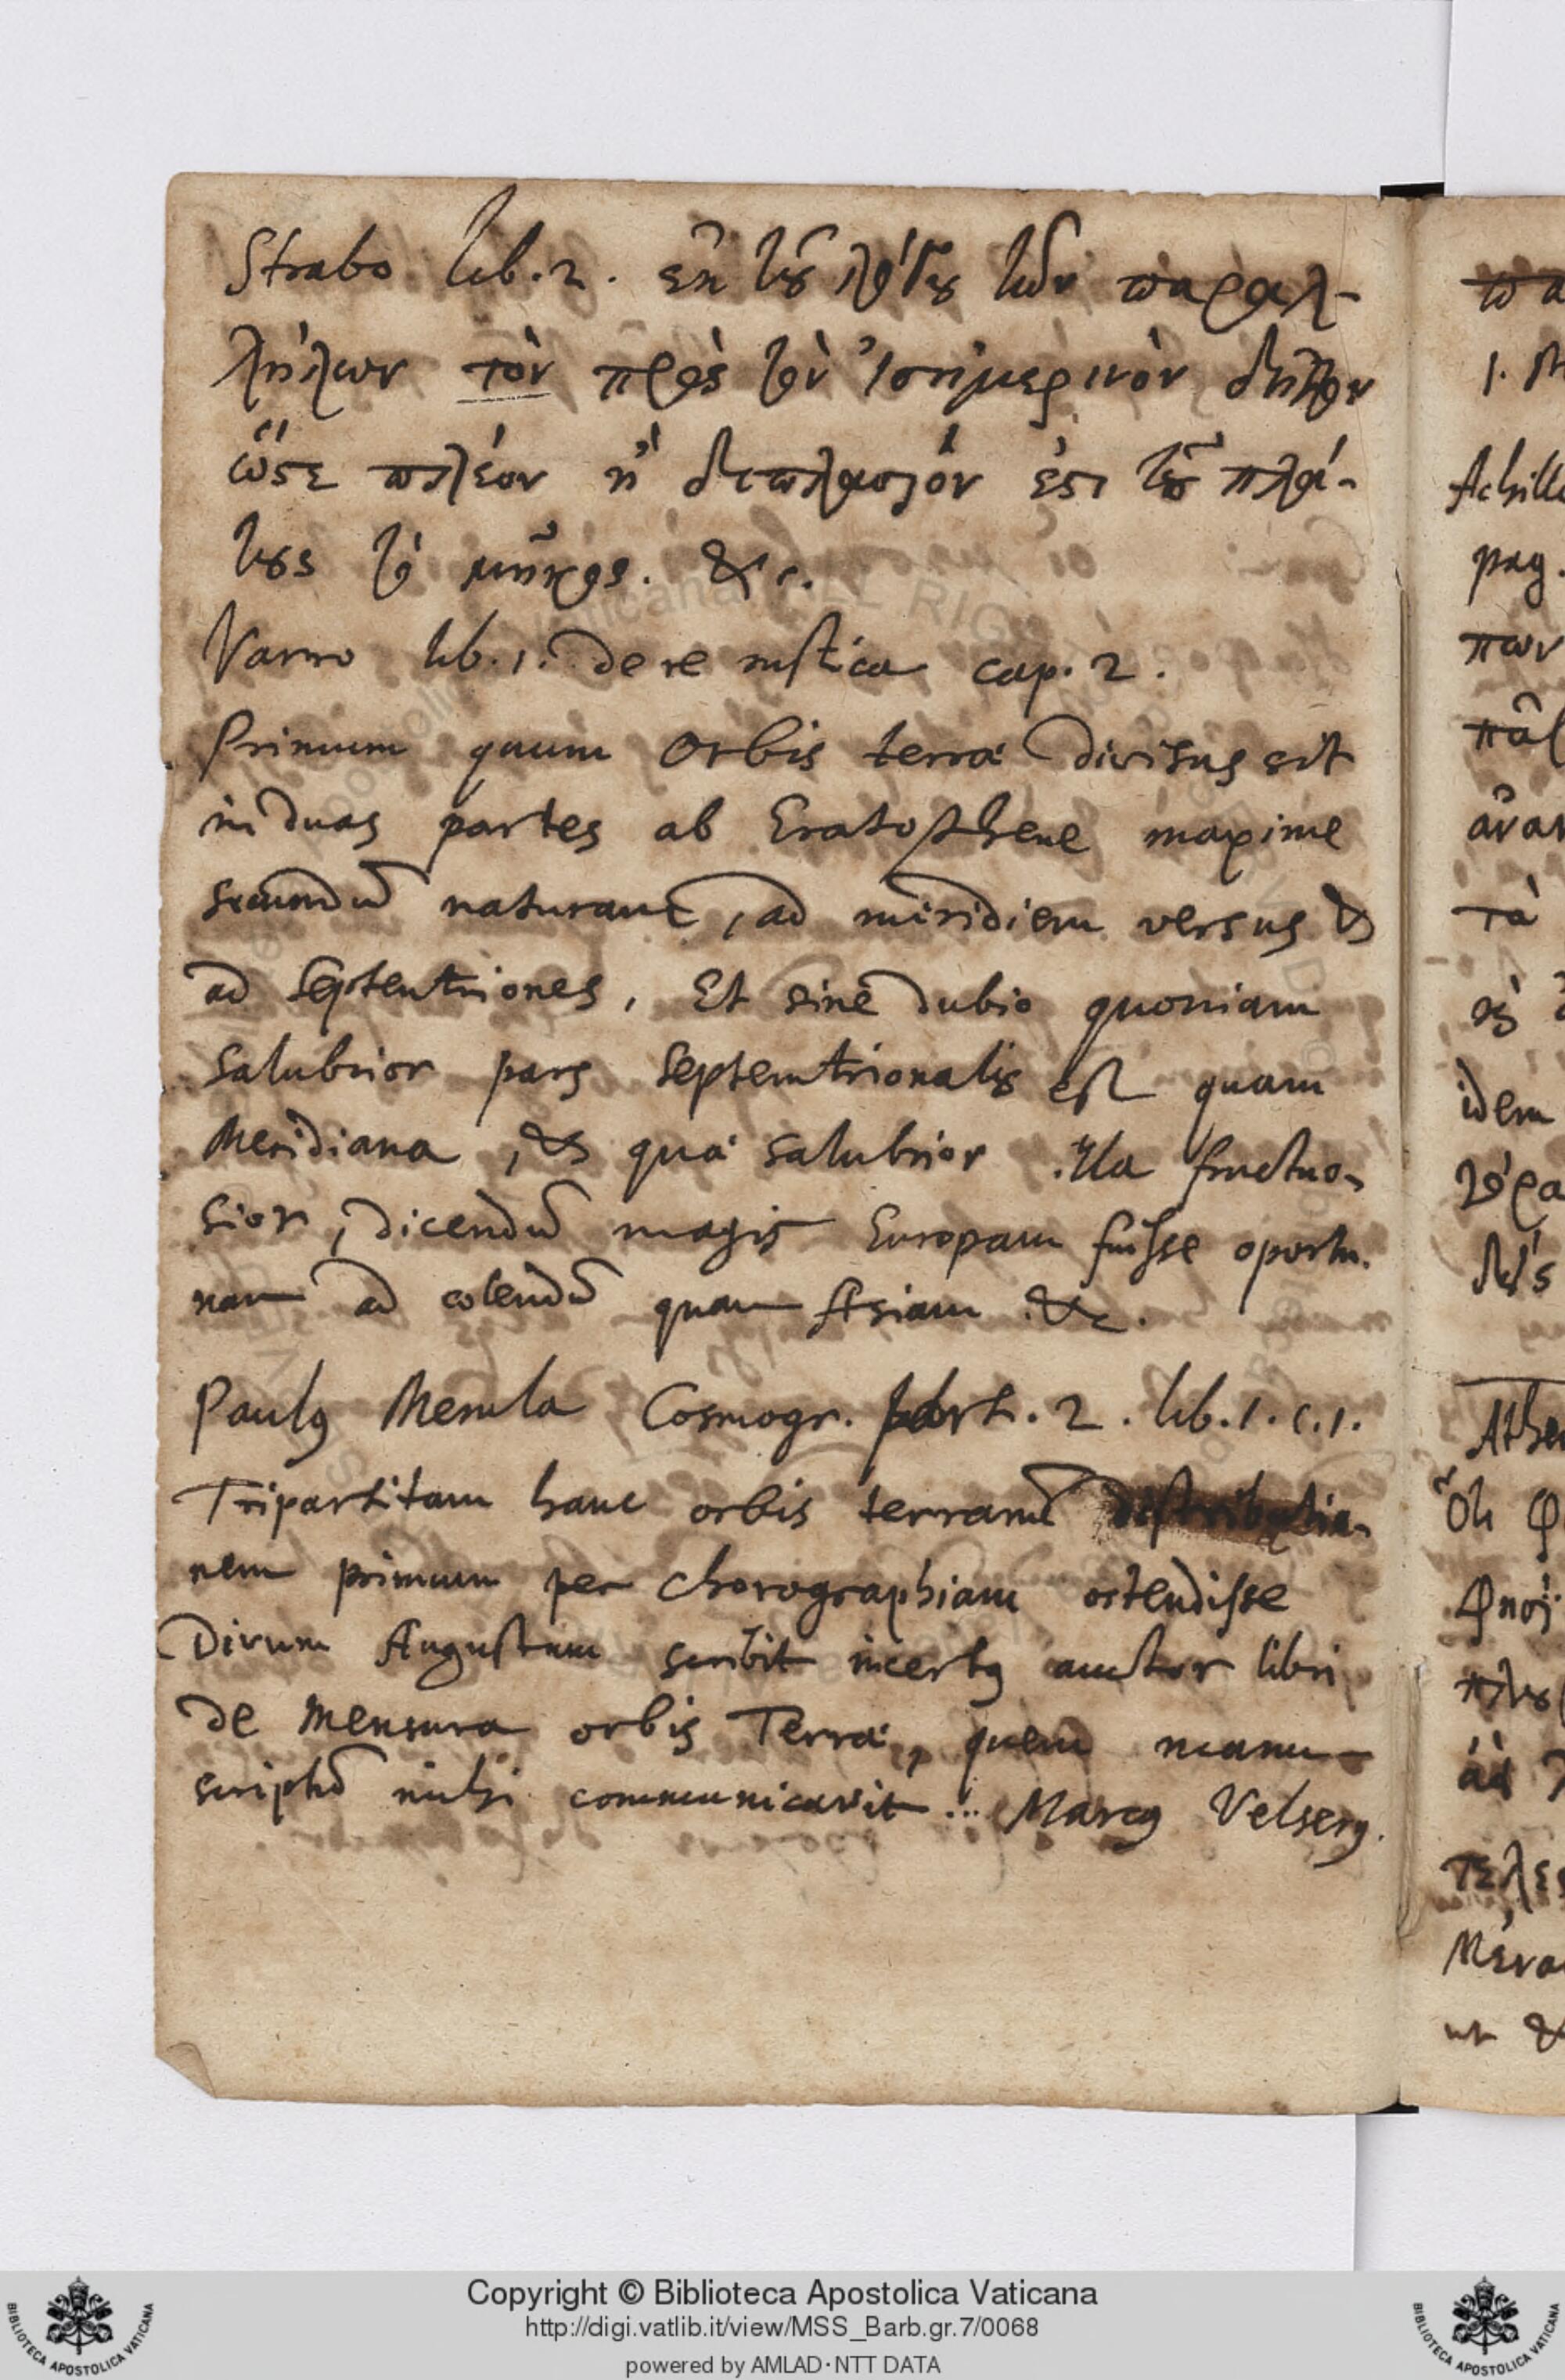 Strabo lib. 2. ἐκ τοῦ λόγου τῶν παραλ-
λήλων τὸν πρὸς τὸν ἰσημερινὸν δῆλον
ὥστε πλέον ἢ διπλάσιόν ἐστι τοῦ πλά-
τους τὸ μῆκος. &c.
Varro lib. 1. de re rustica cap. 2.
Primum quum orbis terrae divisus sit
in duas partes ab Eratosthene maxime
secundū naturam, ad miridiem versus &
ad Septentriones, Et sine dubio quoniam
salubrior pars Septemtrionalis est quam
Meridiana, & quae salubrior illa fructuo-
sior, dicendū magis Europam fuisse oportu-
nam ad colendū quam Asiam &c.
Paulus Merula Cosmogr. part. 2. lib. 1. c. 1.
Tripartitam hanc orbis terrarū distributio-
nem primum per chorographiam ostendisse
Divum Augustum scribit incertus auctor libri
de Mensura orbis Terrae, quem manu-
scriptū mihi communicavit... Marcus Velserus.
Achill
pag.
πων
τὰ
idem
Athe
Copyright © Biblioteca Apostolica Vaticana
http://digi.vatlib.it/view/MSS_Barb.gr.7/0068
powered by AMLAD·NTT DATA
BIBLIOTECA APOSTOLICA VATICANA
BIBLIOTECA APOSTOLICA VATICANA